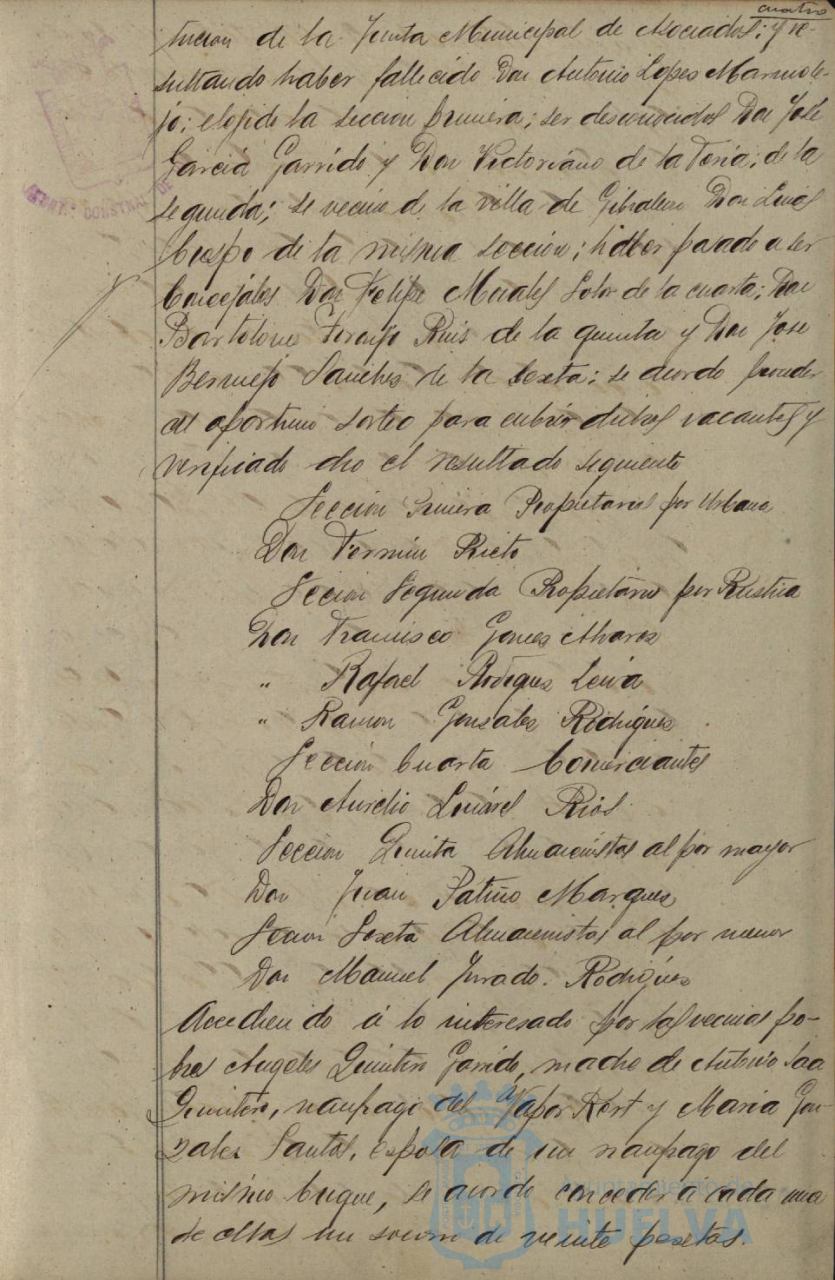 cuatro
tucion de la Junta Municipal de Asociados; y re-
sultando haber fallecido Don Antonio Lopes Marmole-
jo; de la seccion primera; ser desconocidos Don José
Garcia Garrido y Don Victoriano de la Feria; de la
segunda; se vecino de la villa de Gibraleon Don Luis
Crespo de la misma seccion; haber pasado a ser
Concejales Don Felipe Morales Soler de la cuarta; Don
Bartolome Ruis de la quinta y Don Jose
Bermejo Sanches de la sexta; se acordo proceder
al oportuno sorteo para cubrir dichas vacantes y
verificado dio el resultado siguiente
Seccion Primera Propietarios por Urbana
Don Fermin Prieto
Seccion Segunda Propietarios por Rustica
Don Francisco Gomes Alvares
" Rafael Rodrigues Leiva
" Ramon Gonsales Rodrigues
Seccion Cuarta Comerciantes
Don Aurelio Linares Rios
Seccion Quinta Almacenistas al por mayor
Don Juan Patiño Marques
Secion Sexta Almacenistas al por menor
Don Manuel Jurado Rodrigues
Accediendo á lo interesado por las vecinas po-
bres Angeles Quintero Garrido, madre de Antonio Saa
Quintero, naufrago del Vapor y Maria Gon-
zales Santos, esposa de un naufrago del
mismo buque, se acordo conceder a cada una
de ellas un socorro de veinte pesetas.
HUELVA